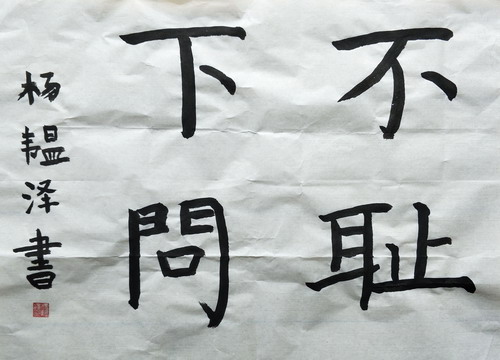 不耻
下問
杨韫泽書